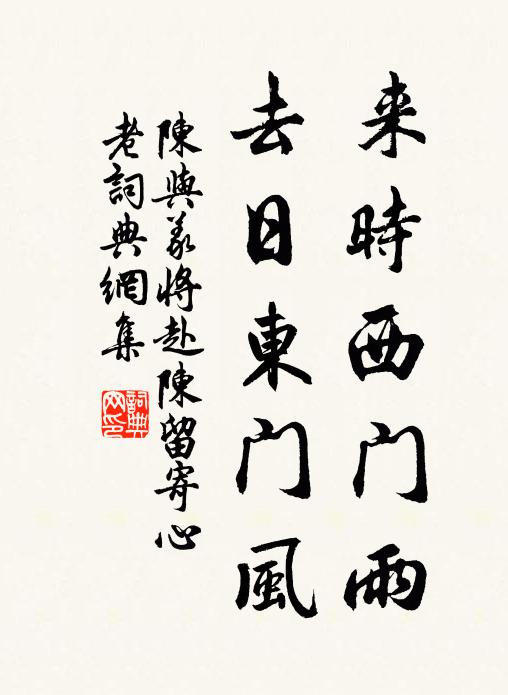 来時西门雨
去日東门風
陳與義將赴陳留寄心
老詞典網集
詞典网印